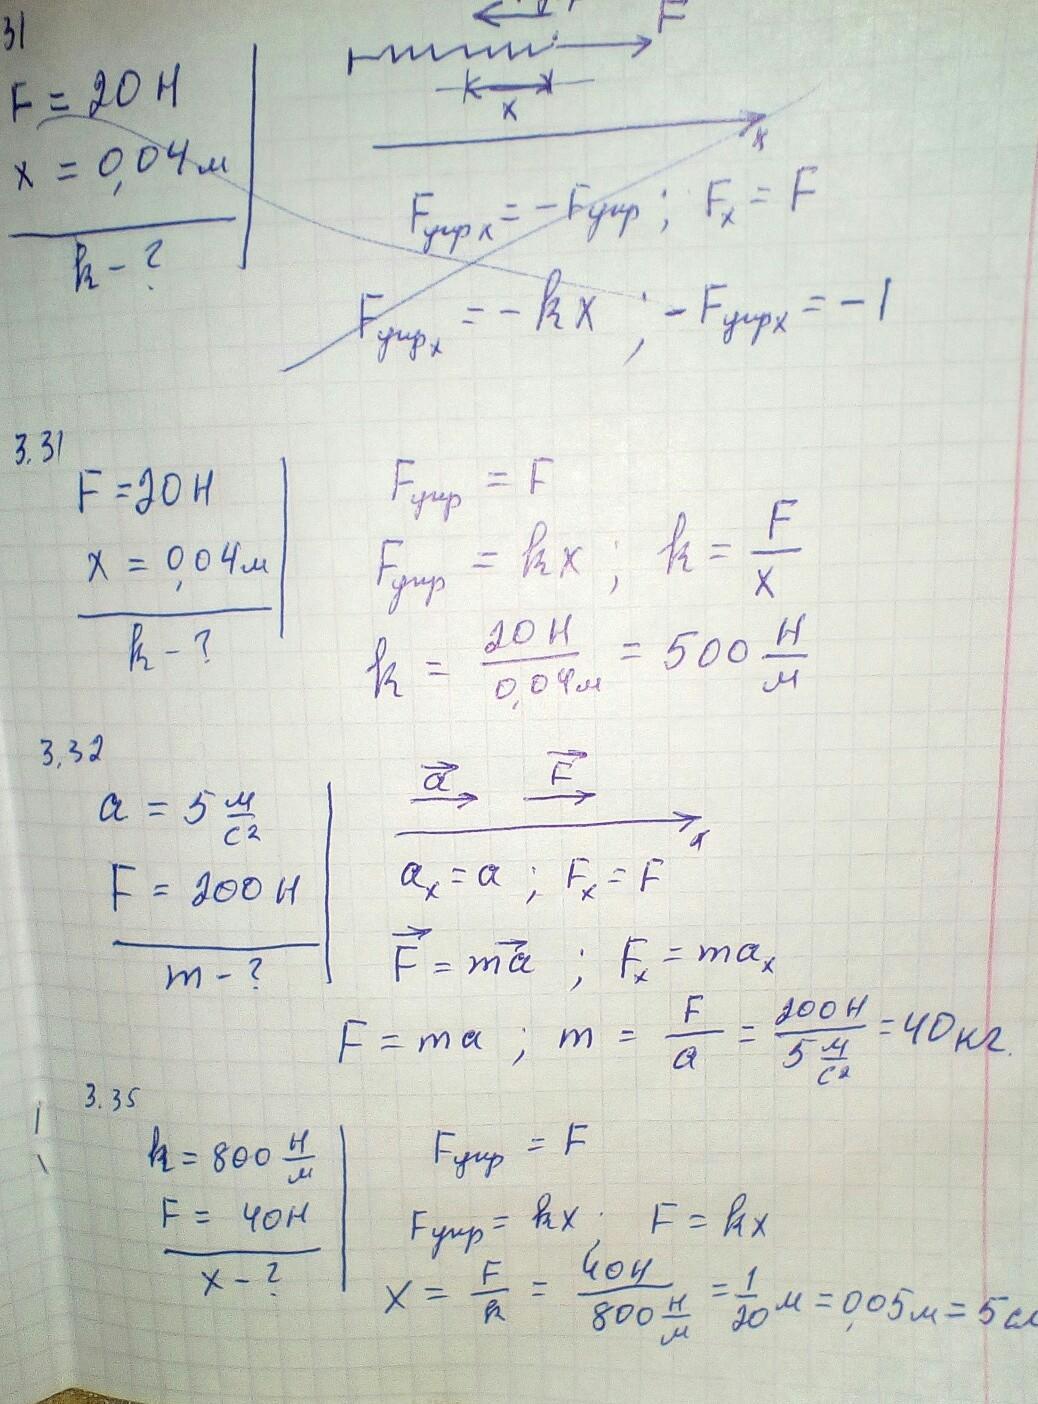 31
F = 20 Н
x = 0,04 м
k - ?
F
x
x
Fупр x = - Fупр ; Fx = F
Fупр x = - kx ; - Fупр x = - 1
3.31
F = 20 Н
x = 0,04 м
k - ?
Fупр = F
Fупр = kx ; k = F/x
k = 20 Н / 0,04 м = 500 Н/м
3.32
a = 5 м/с²
F = 200 Н
m - ?
a⃗ F⃗
x
ax = a ; Fx = F
F⃗ = ma⃗ ; Fx = max
F = ma ; m = F/a = 200 Н / 5 м/с² = 40 кг.
3.35
k = 800 Н/м
F = 40 Н
x - ?
Fупр = F
Fупр = kx ; F = kx
x = F/k = 40 Н / 800 Н/м = 1/20 м = 0,05 м = 5 см